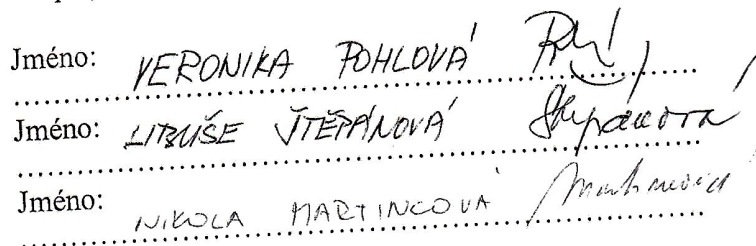 Jméno: VERONIKA POHLOVÁ
Jméno: LIBUŠE ŠTĚPÁNOVÁ Štěpánová
Jméno: NIKOLA MARTINCOVÁ